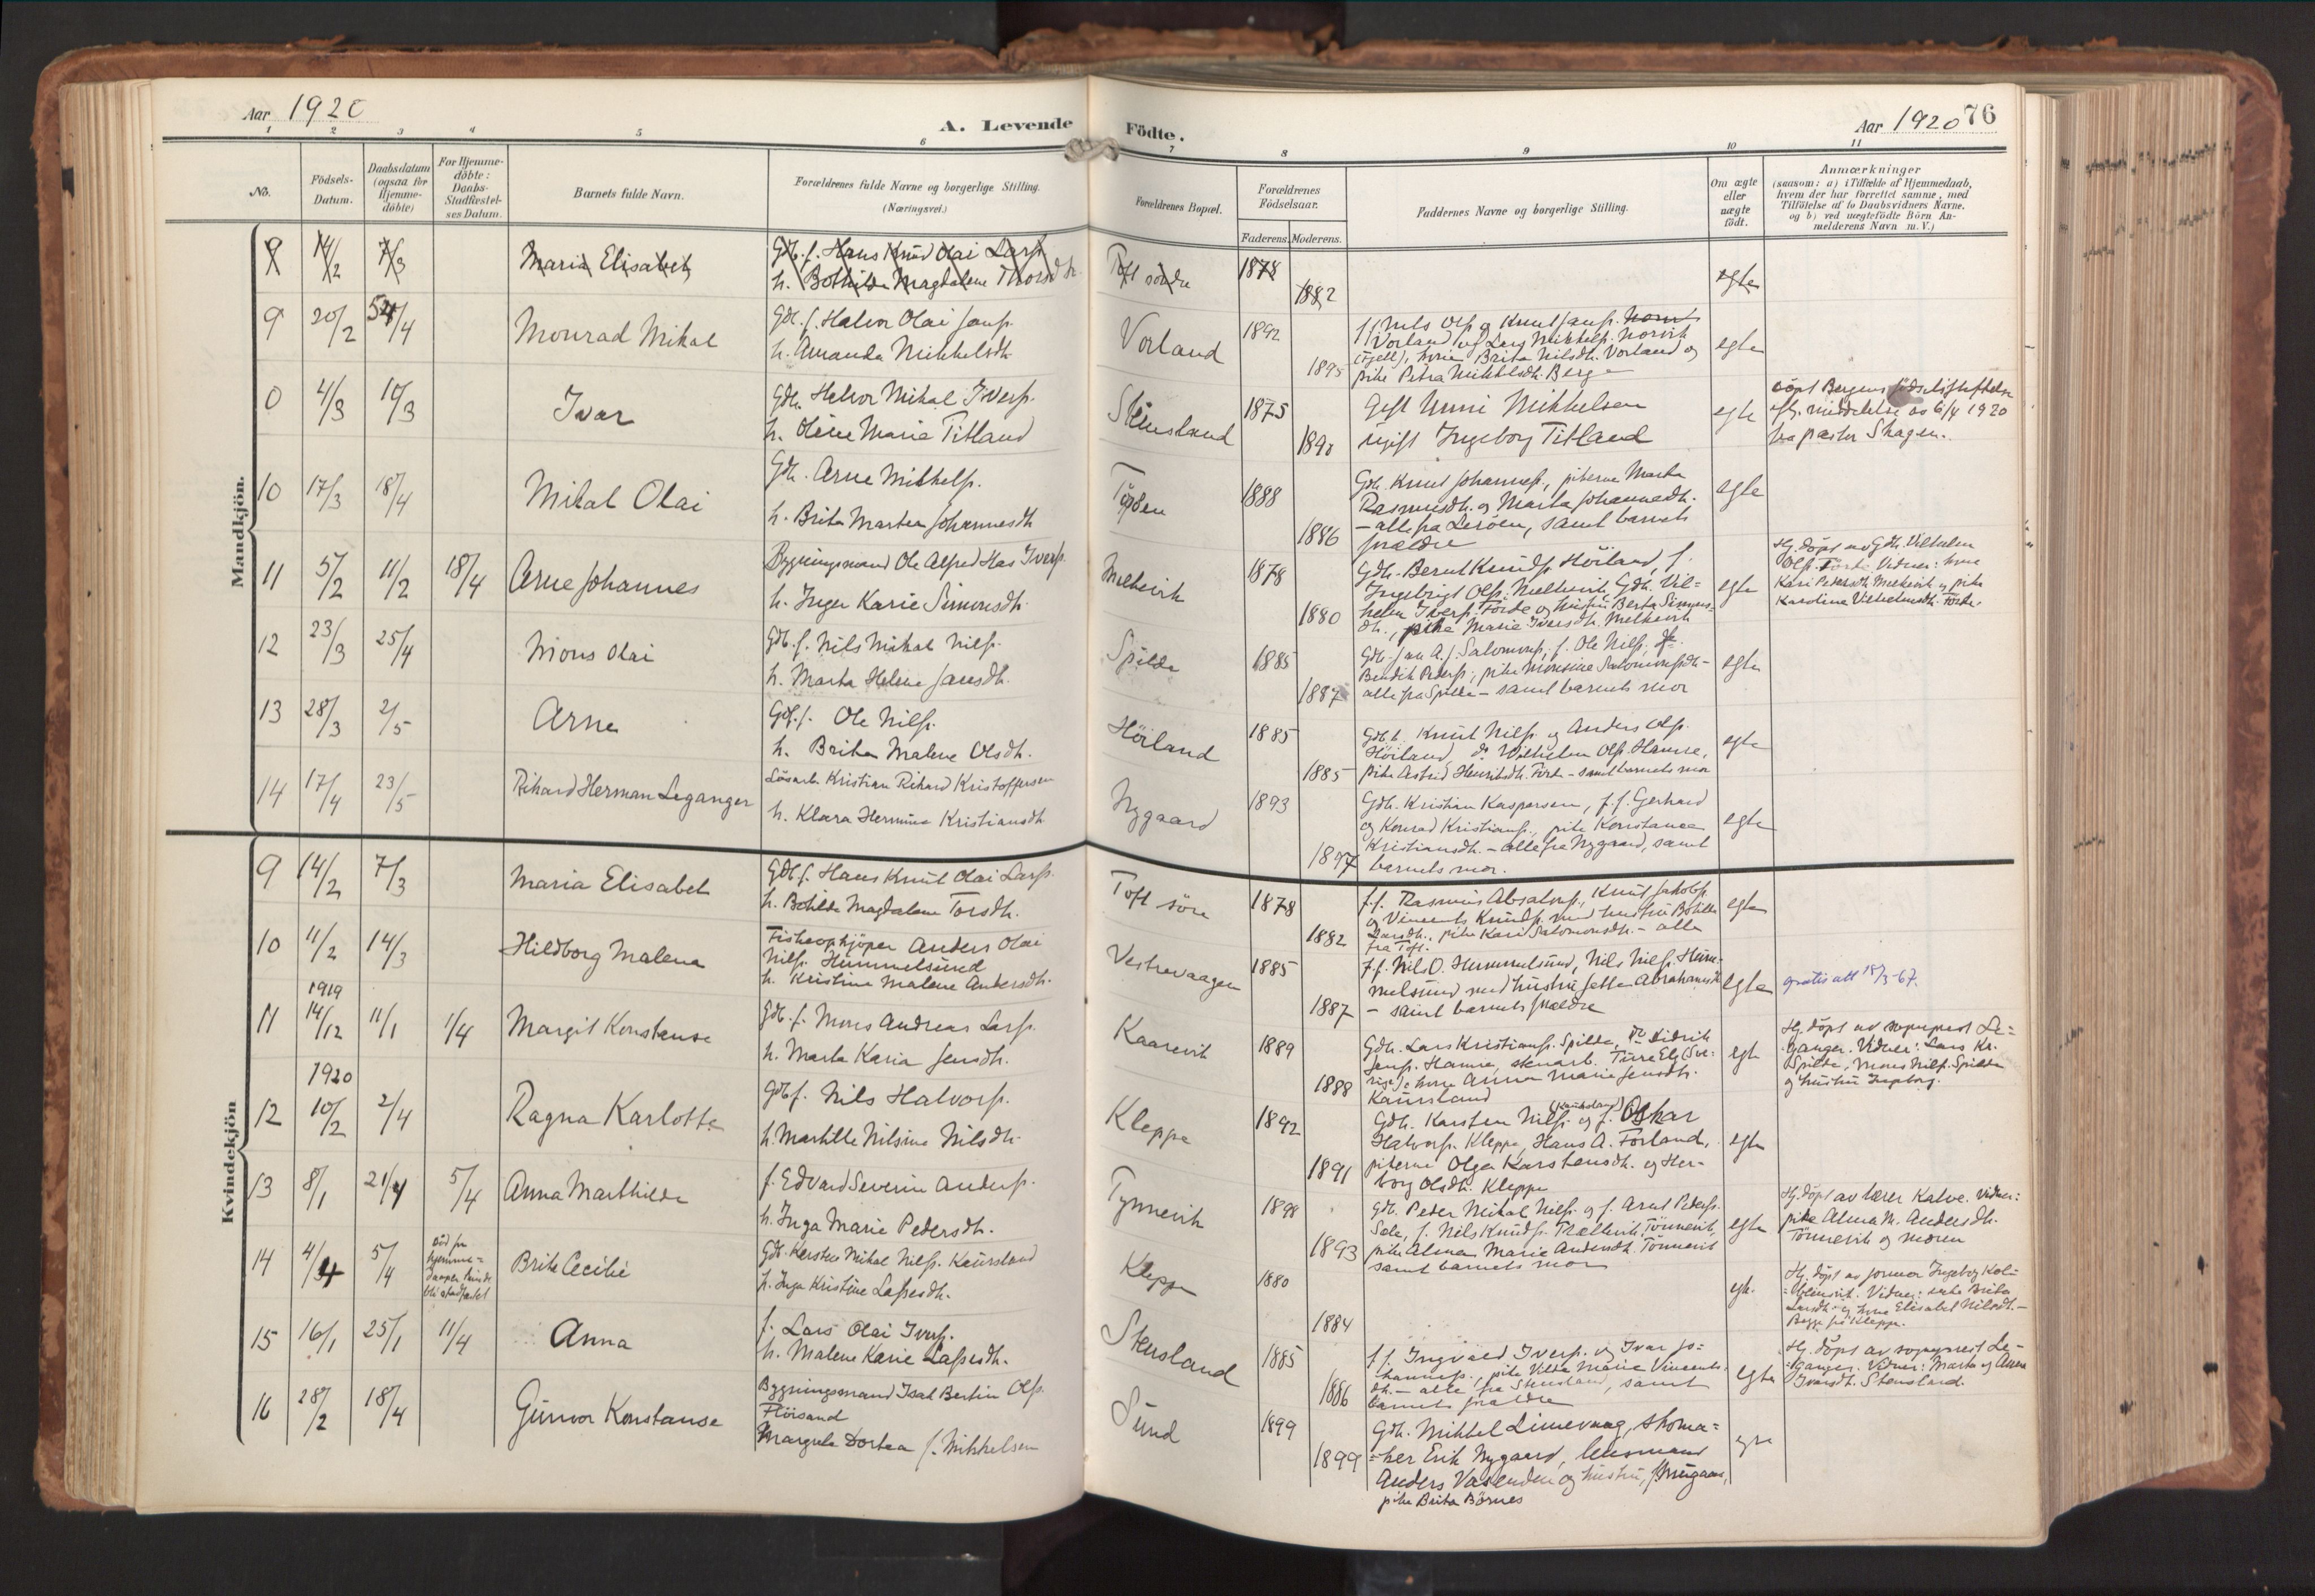 Aar 1920
A. Levende Födte.
Aar 1920 76
1 2 3 4 5 6 7 8 9 10 11
No.
Födsels-Datum.
Daabsdatum (ogsaa for Hjemme-döbte)
For Hjemme-döbte: Daabs-Stadfæstel-ses Datum.
Barnets fulde Navn.
Forældrenes fulde Navne og borgerlige Stilling. (Næringsvei.)
Forældrenes Bopæl.
Forældrenes Födselsaar.
Faderens. Moderens.
Faddernes Navne og borgerlige Stilling.
Om ægte eller uægte födt.
Anmærkninger
(saasom: a) i Tilfælde af Hjemmedaab,
hvem der har forrettet samme, med
Tilföielse af to Daabsvidners Navne.
og b) ved uægtefödte Börn An-
melderens Navn m. V.)
Mandkjön.
9 14/2 7/3 Maria Elisabet
Gdb. f. Hans Knud Olai Larss.
h. Bothilde Magdalene Thorsdtr.
Toft söndre 1878 1882 egte
9 20/2 5/4 Monrad Mikal
Gdb. f. Halvor Olai Janss.
h. Amanda Mikkelsdtr.
Vorland 1892 1895
ff Nils Ols. og Knut Jans.
Vorland og Lars Mikkels. Norvik
(Fjell), kone Brita Nilsdtr. Vorland og
pike Petra Mikkelsdtr. Berge
egte
0 4/3 10/3 Ivar
Gdb. Halvor Mikal Ivers.
h. Oline Maria Titland
Stensland 1875 1890
Gift Unni Mikkelsen
ugift Ingeborg Titland
egte
döpt Bergens födselsstiftelse
efter meddelelse av 6/4 1920
fra pastor Skagen.
10 17/3 18/4 Mikal Olai
Gdb. Arne Mikkels.
h. Brita Martea Johannesdtr
1888 1886
Gdb. Knut Johanness., pikerne Marta
Rasmusdtr. og Marta Johannesdtr.
- alle fra Leröen, samt barnets
forældre
egte
11 5/2 11/2 18/4 Arne Johannes
Bygningsmand Ole Alfred Ivers.
h. Inger Karie Simonsdtr.
Melkevik 1878 1880
Gdb. Bernt Knuds. Höiland, f.
Ingebrigt Ols. Melkevik, Gdb. Vil=
helm Ivers. Förde og hustru Berta Simons=
dtr., pike Marie Iversdtr. Melkevik
egte
Hj. döpt av Gdb. Vilhelm
Ols. Förde. Vidner: kone
Kari Pedersdtr. Melkevik og pike
Karoline Vilhelmsdtr. Förde.
12 23/3 25/4 Mons Olai
Gdb. f. Nils Mikal Nils.
h. Marta Helene Jansdtr.
Spilde 1885 1887
Gdb. Jan A. f. Salomons., f. Ole Nils.,
Bendik Peders., pike Monsine Salomonsdtr.
alle fra Spilde - samt barnets mor
egte
13 28/3 2/5 Arne
Gdb. f. Ole Nils.
h. Brita Malene Olsdtr.
Höiland 1885 1885
Gdb. f. Knut Nils. og Anders Ols.
Höiland, do Vilhelm Ols. Hamre,
pike Astrid Henriksdtr. Förde - samt barnets mor
egte
14 17/4 23/5 Rikard Herman Leganger
Lösarb. Kristian Rikard Kristoffersen
h. Klara Hermine Kristiansdtr
Nygaard 1893 1897
Gdb. Kristian Kaspersen, f.f. Gerhard
og Konrad Kristians., pike Konstance
Kristiansdtr. - alle fra Nygaard, samt
barnets mor.
egte
Kvindekjön
9 14/2 7/3 Maria Elisabet
Gdb. f. Hans Knut Olai Larss.
h. Botilde Magdalene Torsdtr.
Toft söre 1878 1882
f.f. Rasmus Absalons., Knut Jakobs.
og Vincents Knuds. med hustru Botilde
Larsdtr., pike Kari Salomonsdtr. - alle
fra Toft.
egte
10 11/2 14/3 Hildborg Malena
Fiskeopkjöper Anders Olai
Nils. Hummelsund
h. Kristine Malene Andersdtr.
Vestrevaagen 1885 1887
f.f. Nils O. Hummelsund, Nils Nils. Hum=
melsund med hustru Jette Abrahamsdtr
- samt barnets forældre
egte
gratis att 18/3-67.
1919
11 14/12 11/1 1/4 Margit Konstanse
Gdb. f. Mons Andreas Lars.
h. Marta Karia Jensdtr.
Kaarevik 1889 1888
Gdb. Lars Kristians. Spilde, do Didrik
Jens. Hamre, stenarb. Ture Elg (Sve=
rige), kone Anna Marie Jensdtr.
Kausland
egte
Hj. döpt av sogneprest Le=
ganger. Vidner: Lars Kr.
Spilde, Mons Nils. Spilde
og hustru Ingeborg.
1920
12 10/2 2/4 Ragna Karlotte
Gdb f. Nils Halvors.
h. Martille Nilsine Nilsdtr.
Kleppe 1892 1891
Gdb. Karsten Nils. (Kausland) og f. Oskar
Halvors. Kleppe, Hans A. Forland,
pikerne Olga Karstensdtr. og Her-
borg Olsdtr. Kleppe
egte
13 8/1 21/4 5/4 Anna Marthilde
f. Edvard Severin Anders.
h. Inga Marie Pedersdtr.
Tynnevik 1898 1893
Gdb. Peder Mikal Nils. og f. Arnt Peders.
Sele, f. Nils Knuds. Trællevik, Tönnevik,
pike Alma Marie Andersdtr. Tönnevik
samt barnets mor
egte
Hj. döpt av lærer Kalve. Vidner:
pike Alma M. Andersdtr.
Tönnevik og moren
14 4/4 5/4 död för hjemme=daapen kunde bli stadfæstet Brita Cecilie
Gdb. Karsten Mikal Nils. Kausland
h. Inga Kristine Lassesdtr.
Kleppe 1880 1884
egte.
Hj. döpt av jormor Ingeborg Kol=
beinsvik. Vidner: enke Brita
Larsdtr. og kone Elisabet Nilsdtr. -
Begge fra Kleppe.
15 16/1 25/1 11/4 Anna
f. Lars Olai Ivers.
h. Malene Karie Lassesdtr.
Stensland 1885 1886
f.f. Ingvald Ivers. og Ivar Jo=
hanness., pike Vilda Marie Vincents=
dtr. - alle fra Stensland, samt
barnets forældre
egte
Hj. döpt av sogneprest Le=
ganger. Vidner: Marta og Anna
Ivarsdtr. Stensland.
16 28/2 18/4 Gunvor Konstanse
Bygningsmand Isak Bertin Ols.
Flöisand
Margrete Dortea f. Mikkelsen
Sund 1899 1899
Gdb. Mikkel Limevaag, skoma=
=ker Erik Nygaard, lensmand
Anders Vasenden og hustru,
pike Brita Börnes